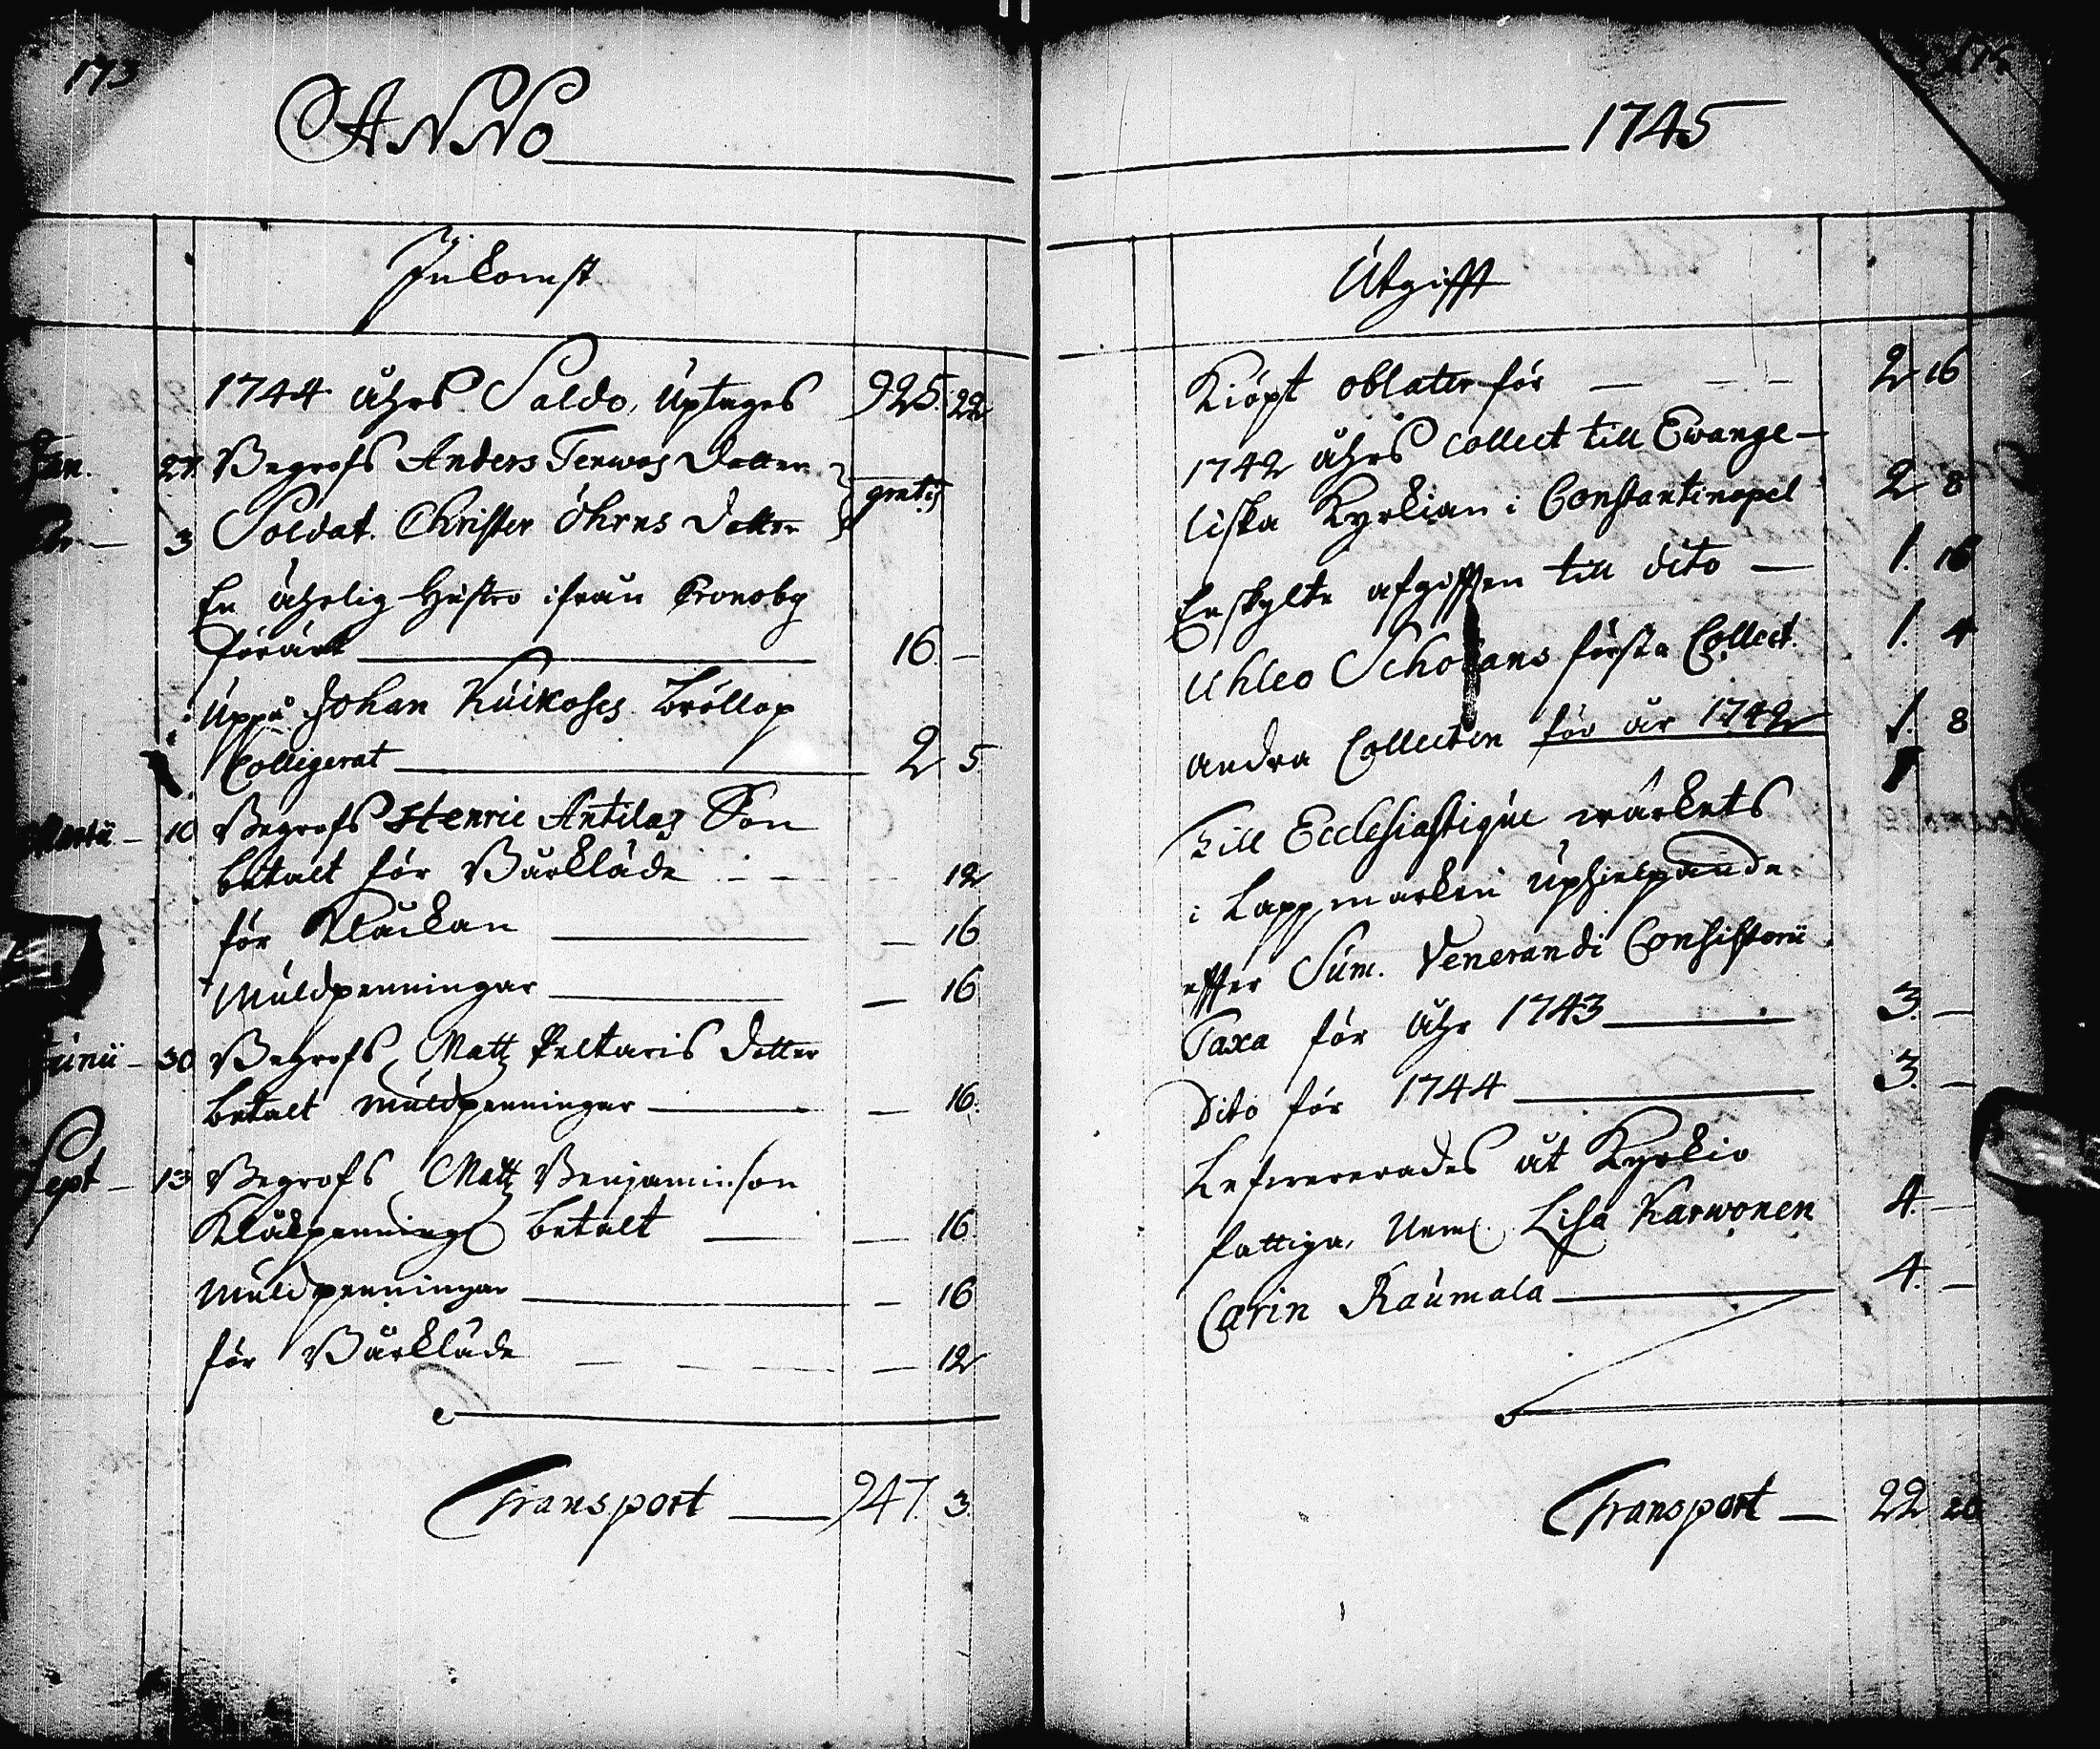 173
ANNO
Inkomst
1744 åhrs Saldo, Uptages 925. 22
Jan. 27. Begrofs Anders Terwos dotter
3 Soldat. Christer Öhrns dotter gratis
En ährlig Hustro ifrån Cronoby
förärt 16. —
Uppå Johan Kuikoses Bröllop
Colligerat 2 5.
Martii — 10 Begrofs Henric Antilas Son
betalt för Bårkläde 12
för Klåckan — 16
Muldpenningar — 16
Junii — 30 Begrofs Matz Peltaris dotter
betalt muldpenningar — 16.
Sept — 13 Begrofs Matz Benjaminson
Klåckpenning betalt — 16
Muldpenningar — 16
för Bårkläde — 12
Transport — 947. 3.
1745
Utgifft
Kiöpt oblater för — 2 16
1742 åhrs Collect till Ewange-
liska Kyrkian i Constantinopel 2 8
Enskylte afgifften till dito — 1. 16
Uhleo Scholans första Collect. 1. 4
andra Collecten för år 1742 1. 8
till Ecclesiastique wärkets
i Lappmarken uphielpande
effter Sum. Venerandi Consistorii
Taxa för åhr 1743 — 3. —
Dito för 1744 — 3. —
Lefwererades åt Kyrkio
fattiga, Neml. Lisa Karwonen 4. —
Carin Raumala — 4. —
Transport — 22 20